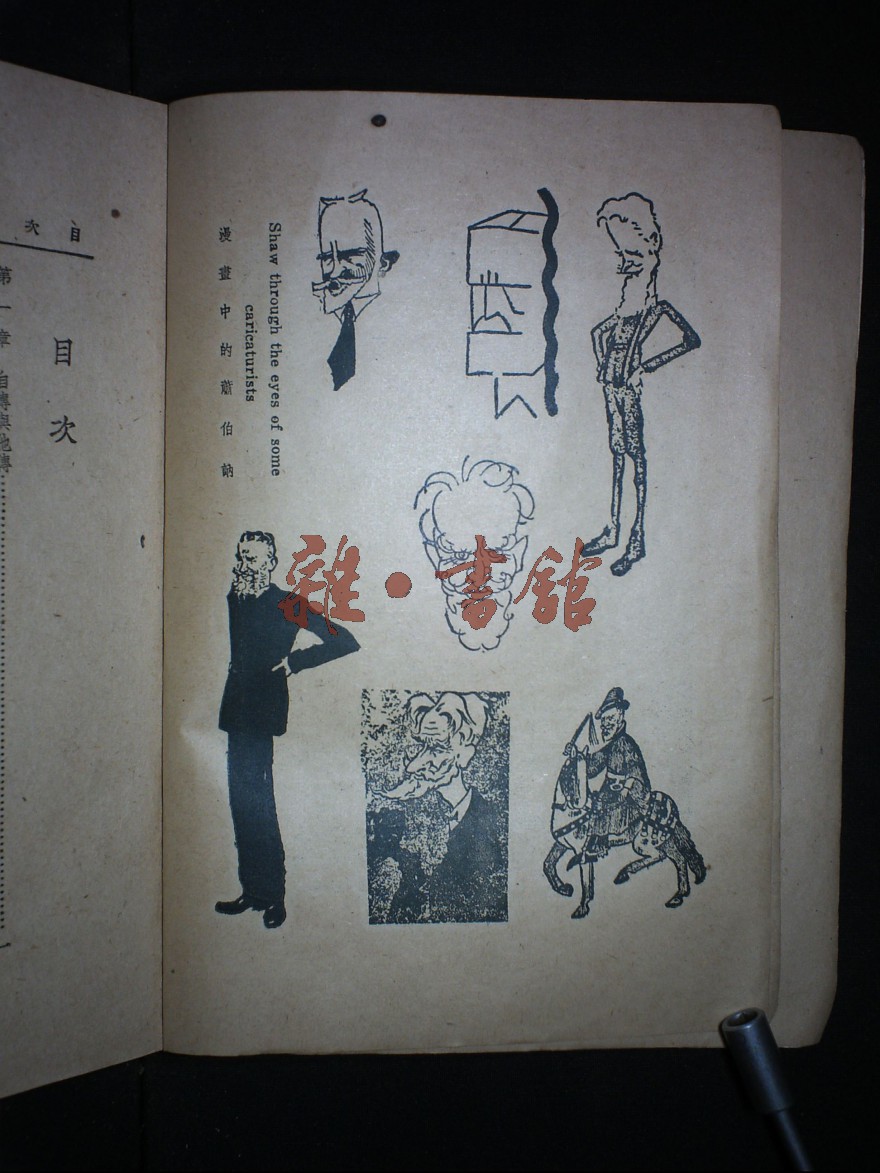 Shaw through the eyes of some
caricaturists
漫畫中的蕭伯訥
目次
目次
第一章 自傳與他傳……………………………一
雜·書館